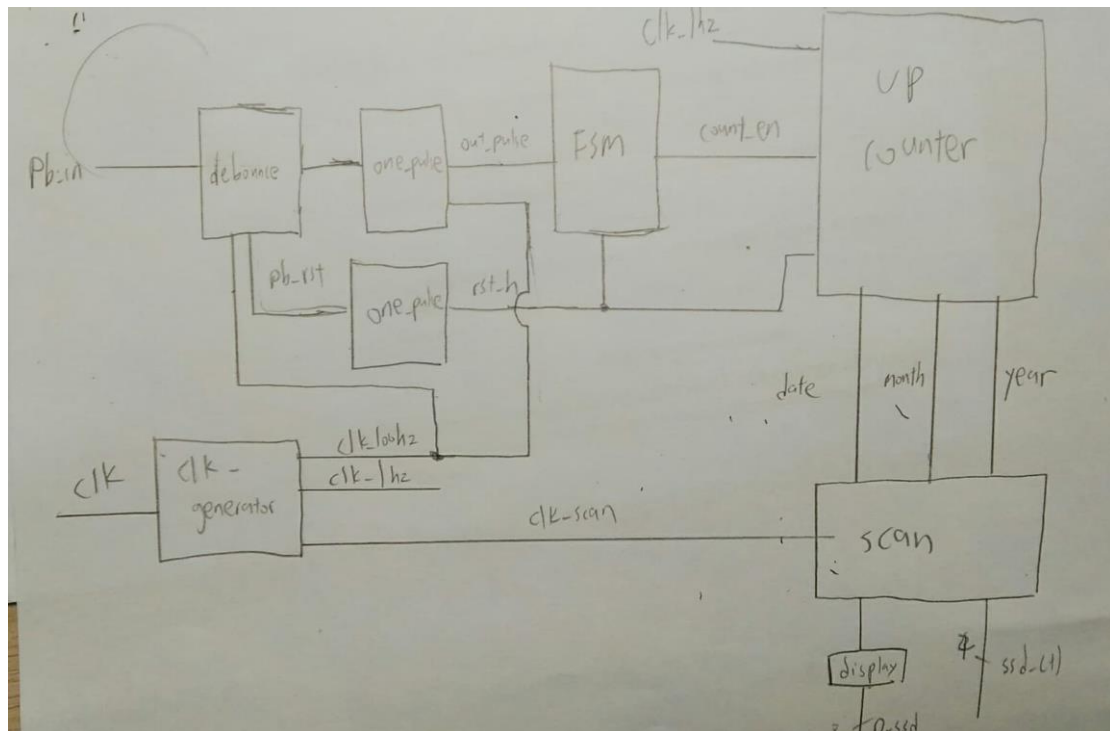 clk_1hz
up
counter
Pb_in
debounce
one_pulse
out_pulse
FSM
count_en
pb_rst
one_pulse
rst_h
date
month
year
clk
clk_
generator
clk_100hz
clk_1hz
clk_scan
scan
display
4
ssd_ctl